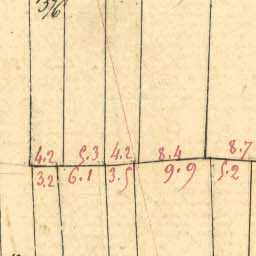 4.2 5.3 4.2 8.4 8.7
3.2 6.1 3.5 9.9 5.2